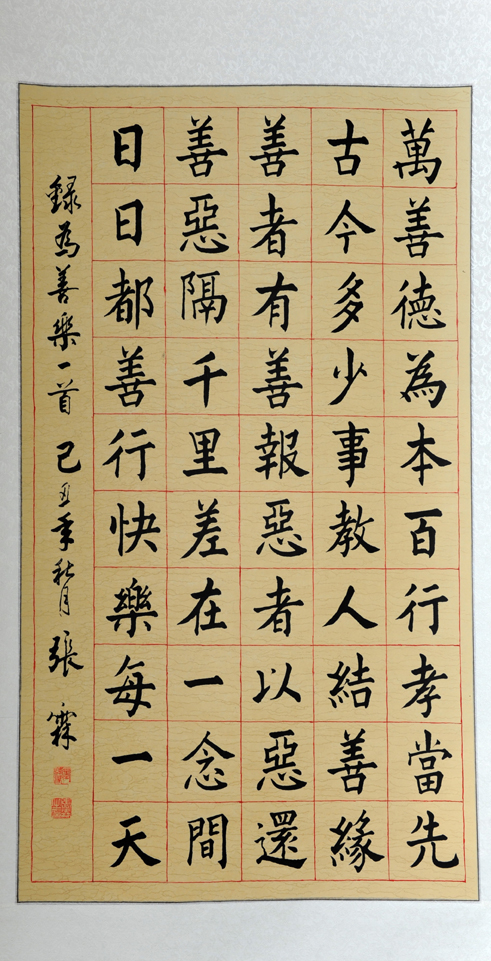 萬善德為本百行孝當先
古今多少事教人結善緣
善者有善報惡者以惡還
善惡隔千里差在一念間
日日都善行快樂每一天
録為善樂一首 己丑年秋月 張霖